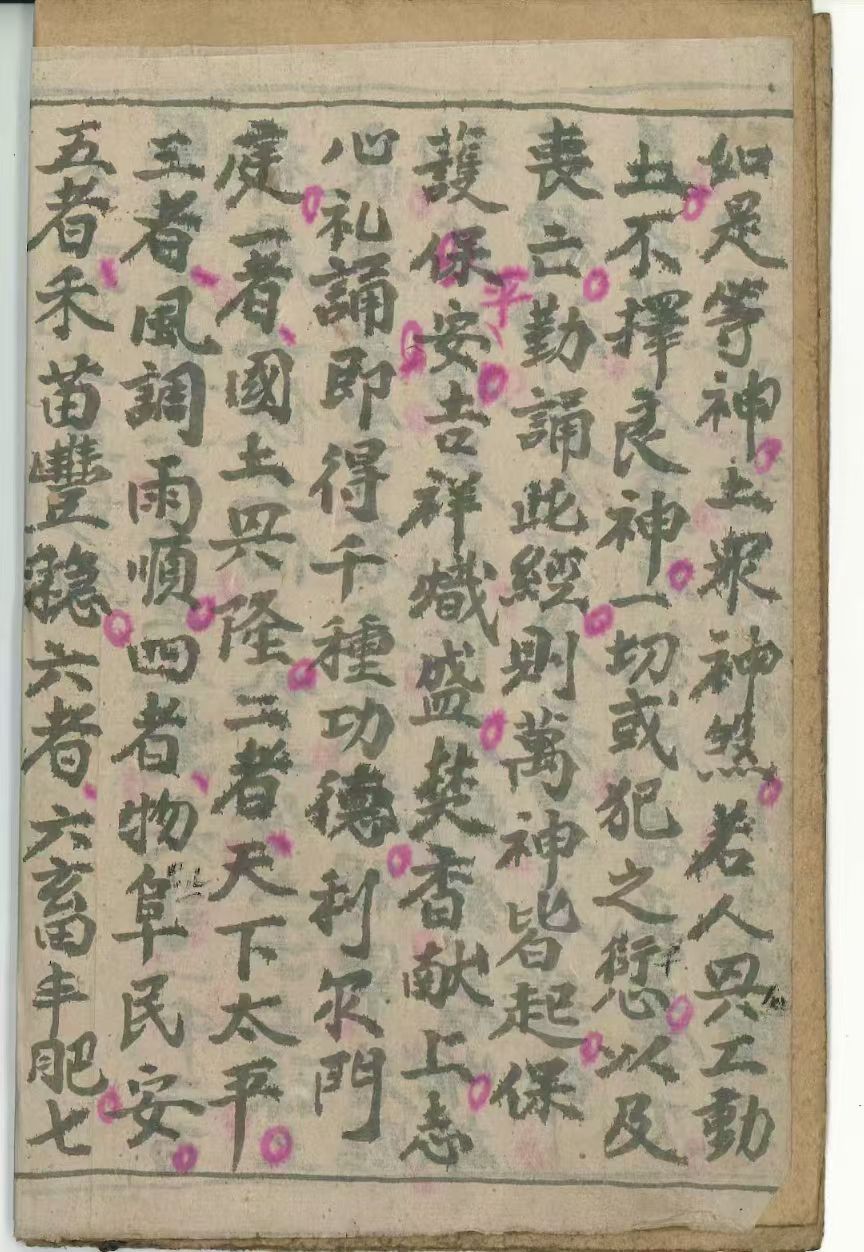 如是等神土眾神煞若人興工動
土不擇良神一切或犯之愆以及
喪亡勤誦此經則萬神皆起保
護保平安吉祥熾盛焚香献上志
心礼誦即得千種功德利尔門
庭一者國土興隆二者天下太平
三者風調雨順四者物阜民安
五者禾苗豐稳六者六畜丰肥七